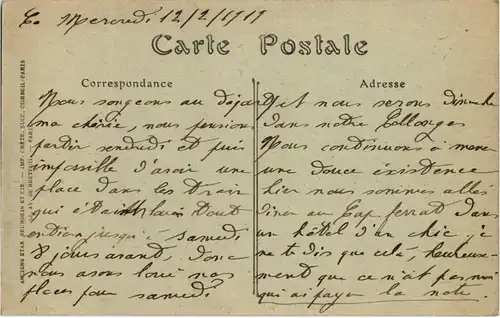 Ce Mercredi 12/2/1919
Carte Postale
Correspondance
Nous songeons au départ
ma chérie, nous pensions
partir vendredi et puis
impossible d'avoir une
place dans les train
qui étaint loués tout
entier jusqu'à samedi
8 jours avant, donc
nous avons loué nos
places pour samedi
Adresse
nous serons dimanche
dans notre Collonges
Nous continuons à mener
une douce éxistence
hier nous sommes allés
diner au Cap ferrat dans
un hôtel d'un chic je
ne te dis que celà, heureuse-
ment que ce n'ait pas moi
qui ai payer la note.
ANCIENS ETAB. NEURDEIN ET CIE. — IMP. CRÉTÉ, SUCC. CORBEIL-PARIS